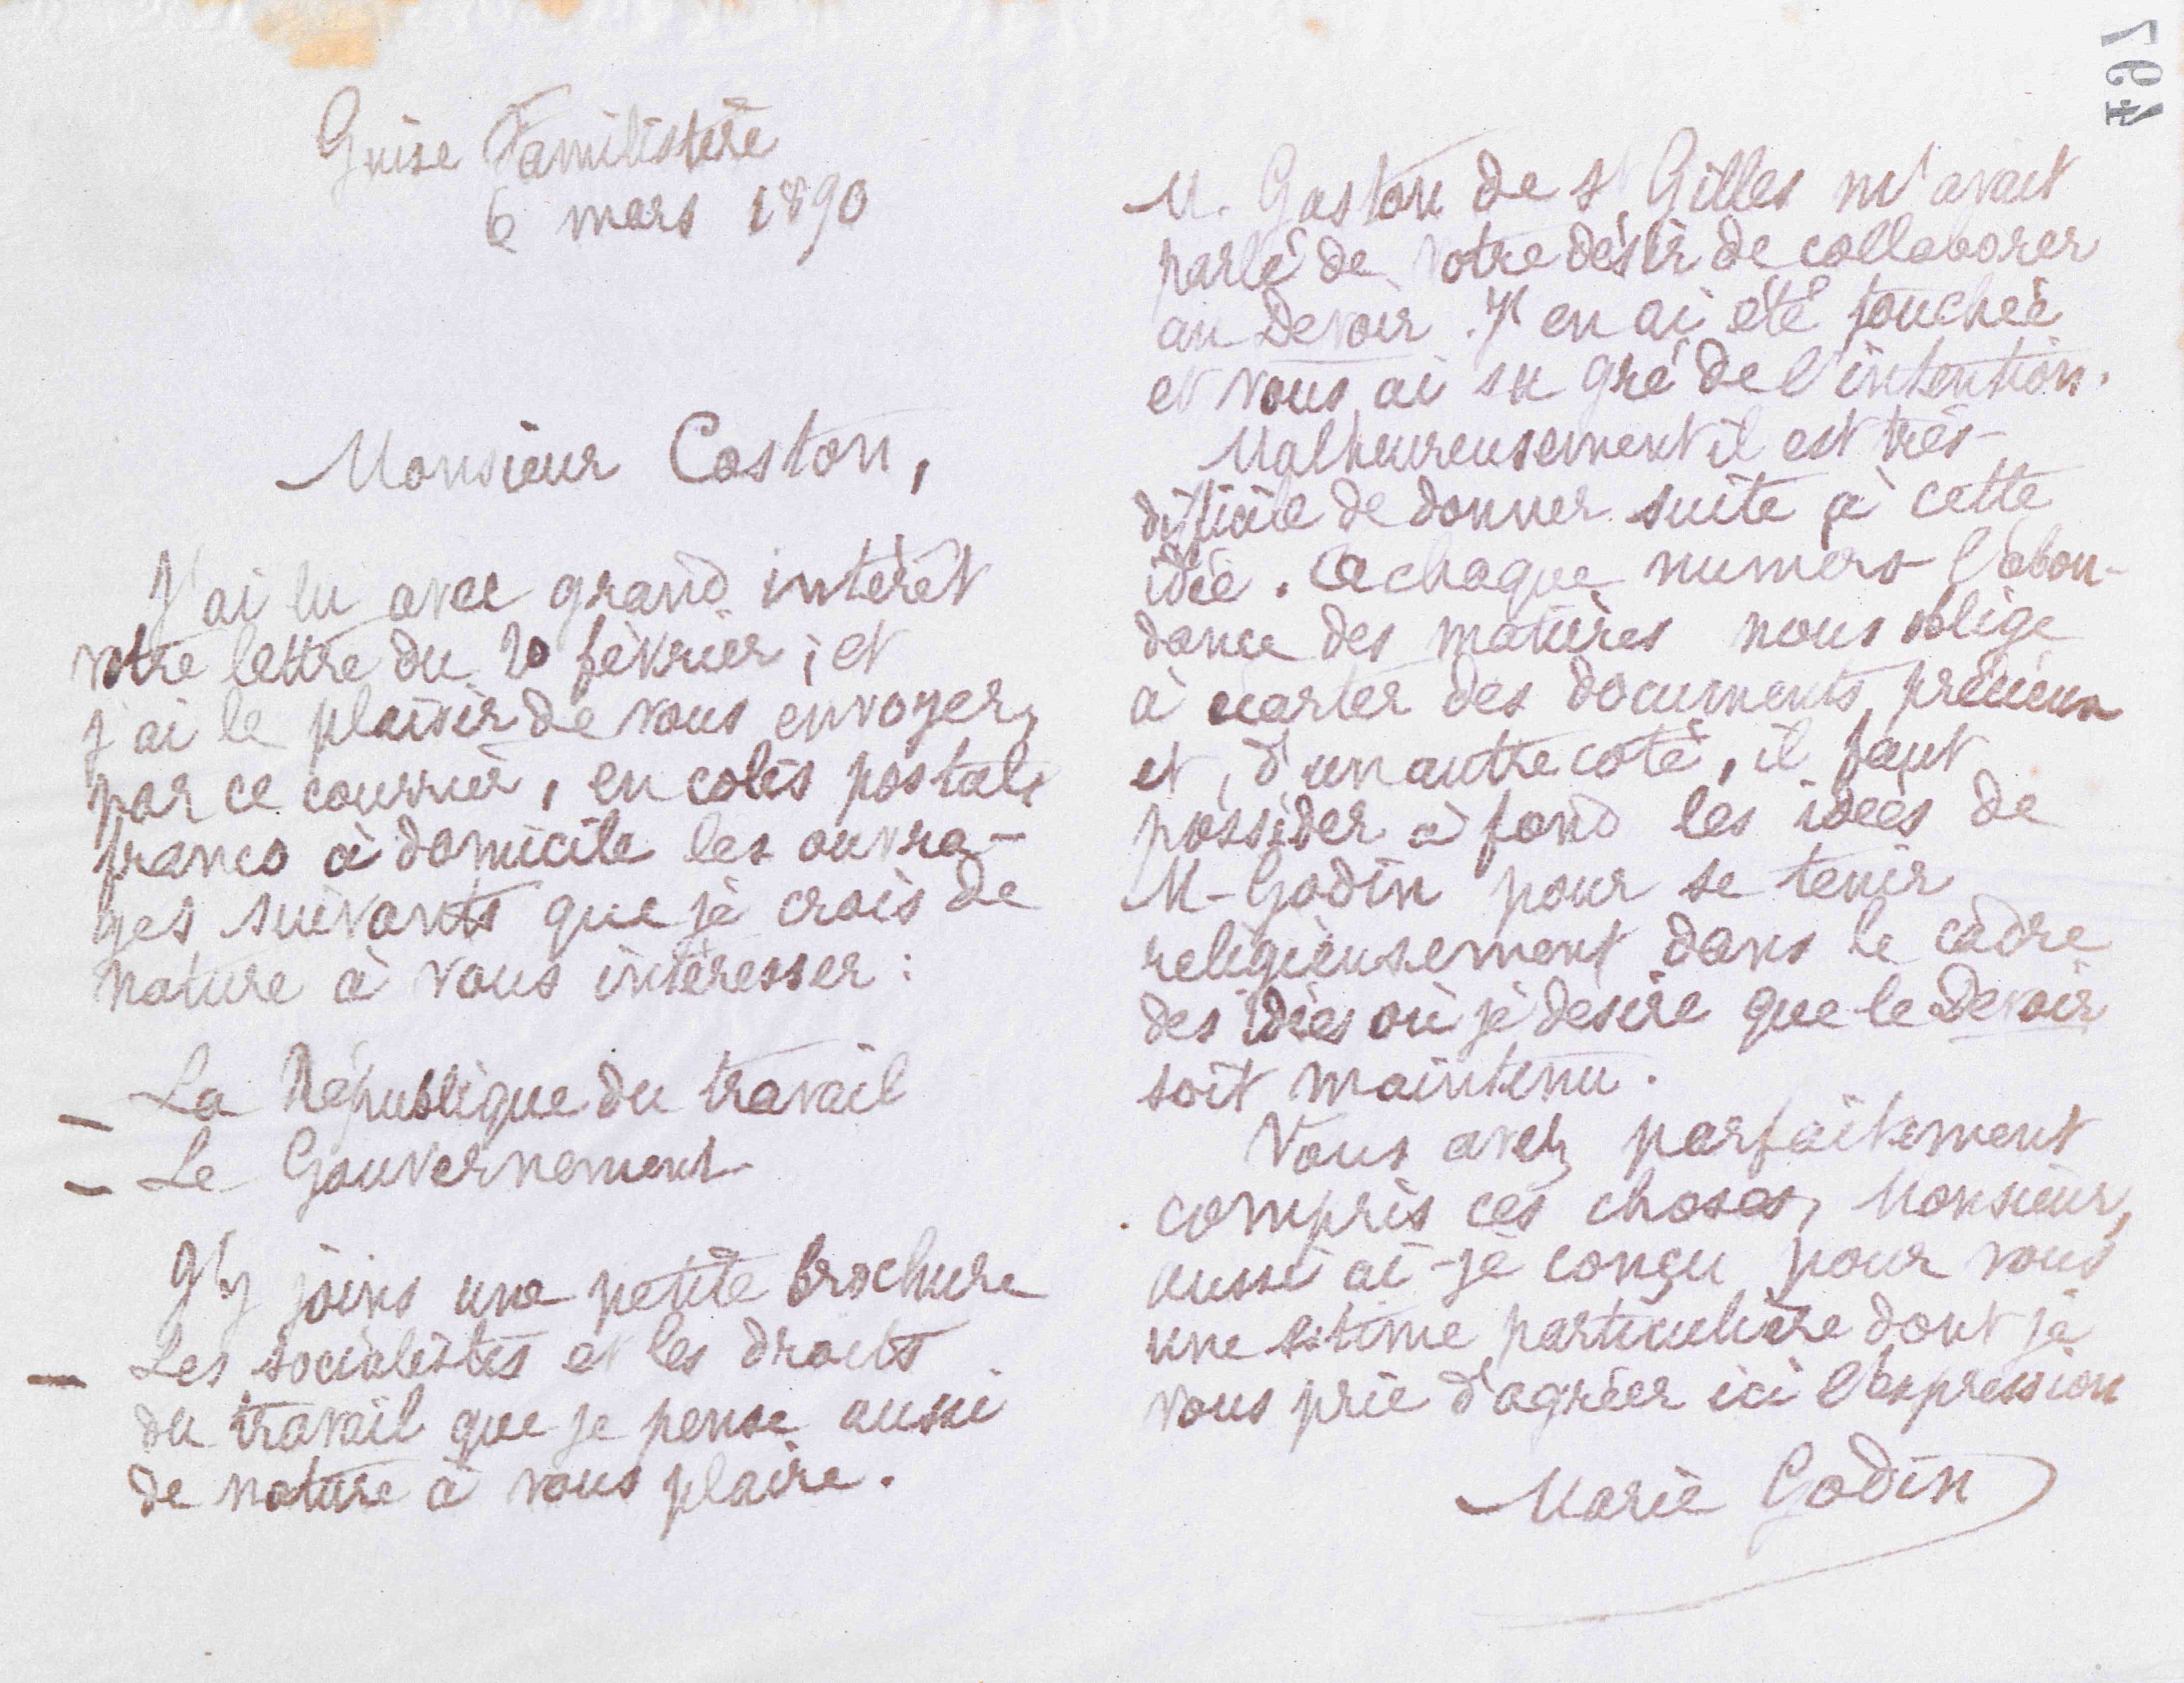 Guise Familistère
6 mars 1890
Monsieur Coston,
J'ai lu avec grand intérêt
votre lettre du 20 février ; et
j'ai le plaisir de vous envoyer,
par ce courrier, en colis postal,
franco à domicile les ouvra-
ges suivants que je crois de
nature à vous intéresser :
— La République du travail
— Le Gouvernement
J'y joins une petite brochure
— Les socialistes et les droits
du travail que je pense aussi
de nature à vous plaire.
497
M. Gaston de St Gilles m'avait
parlé de votre désir de collaborer
au Devoir. J'en ai été touchée
et vous ai su gré de l'intention.
Malheureusement il est très-
difficile de donner suite à cette
idée. A chaque numéro l'abon-
dance des matières nous oblige
à écarter des documents précieux
et, d'un autre côté, il faut
posséder à fond les idées de
M. Godin pour se tenir
religieusement dans le cadre
des idées où je désire que le Devoir
soit maintenu.
Vous avez parfaitement
compris ces choses, Monsieur,
aussi ai-je conçu pour vous
une estime particulière dont je
vous prie d'agréer ici l'expression
Marie Godin